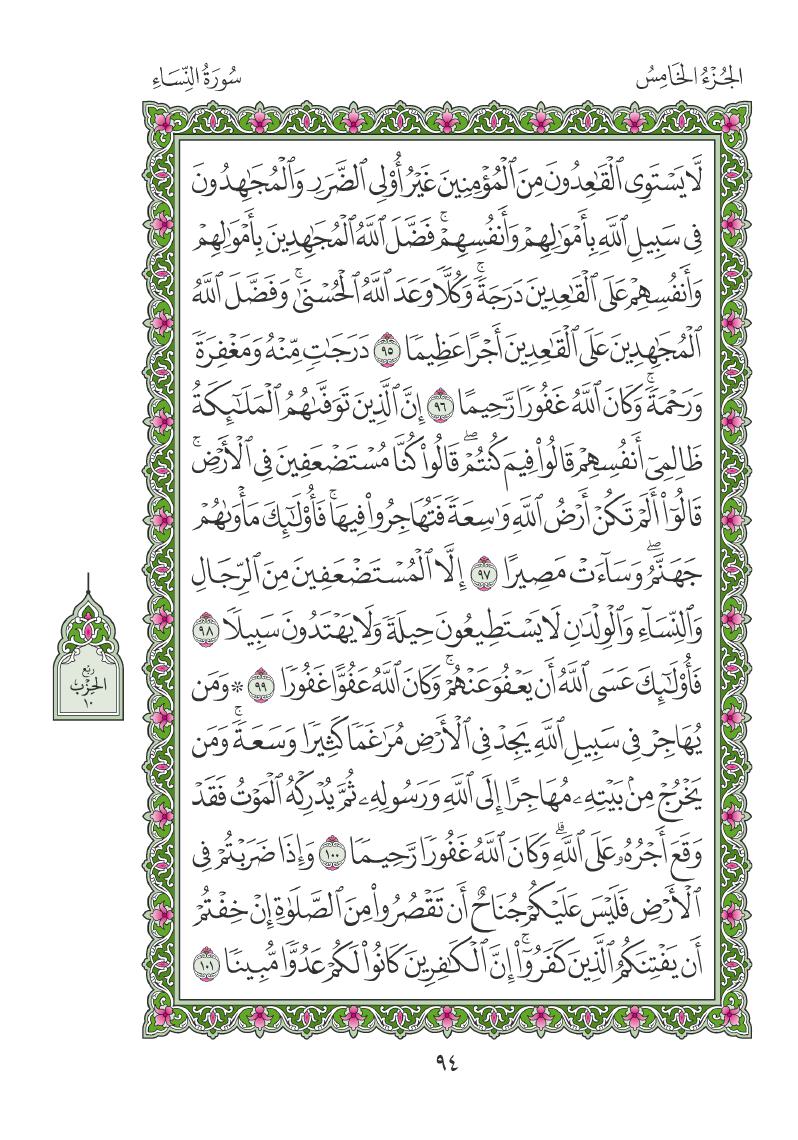 الجُزْءُ الخَامِسُ
سُورَةُ النِّسَاءِ
لَّا يَسْتَوِى ٱلْقَٰعِدُونَ مِنَ ٱلْمُؤْمِنِينَ غَيْرُ أُو۟لِى ٱلضَّرَرِ وَٱلْمُجَٰهِدُونَ
فِى سَبِيلِ ٱللَّهِ بِأَمْوَٰلِهِمْ وَأَنفُسِهِمْۚ فَضَّلَ ٱللَّهُ ٱلْمُجَٰهِدِينَ بِأَمْوَٰلِهِمْ
وَأَنفُسِهِمْ عَلَى ٱلْقَٰعِدِينَ دَرَجَةًۚ وَكُلًّا وَعَدَ ٱللَّهُ ٱلْحُسْنَىٰۚ وَفَضَّلَ ٱللَّهُ
ٱلْمُجَٰهِدِينَ عَلَى ٱلْقَٰعِدِينَ أَجْرًا عَظِيمًا ٩٥ دَرَجَٰتٍ مِّنْهُ وَمَغْفِرَةً
وَرَحْمَةًۚ وَكَانَ ٱللَّهُ غَفُورًا رَّحِيمًا ٩٦ إِنَّ ٱلَّذِينَ تَوَفَّىٰهُمُ ٱلْمَلَٰٓئِكَةُ
ظَالِمِىٓ أَنفُسِهِمْ قَالُوا۟ فِيمَ كُنتُمْۖ قَالُوا۟ كُنَّا مُسْتَضْعَفِينَ فِى ٱلْأَرْضِۚ
قَالُوٓا۟ أَلَمْ تَكُنْ أَرْضُ ٱللَّهِ وَٰسِعَةً فَتُهَاجِرُوا۟ فِيهَاۚ فَأُو۟لَٰٓئِكَ مَأْوَىٰهُمْ
جَهَنَّمُۖ وَسَآءَتْ مَصِيرًا ٩٧ إِلَّا ٱلْمُسْتَضْعَفِينَ مِنَ ٱلرِّجَالِ
وَٱلنِّسَآءِ وَٱلْوِلْدَٰنِ لَا يَسْتَطِيعُونَ حِيلَةً وَلَا يَهْتَدُونَ سَبِيلًا ٩٨
فَأُو۟لَٰٓئِكَ عَسَى ٱللَّهُ أَن يَعْفُوَ عَنْهُمْۚ وَكَانَ ٱللَّهُ عَفُوًّا غَفُورًا ٩٩ ۞ وَمَن
يُهَاجِرْ فِى سَبِيلِ ٱللَّهِ يَجِدْ فِى ٱلْأَرْضِ مُرَٰغَمًا كَثِيرًا وَسَعَةًۚ وَمَن
يَخْرُجْ مِنۢ بَيْتِهِۦ مُهَاجِرًا إِلَى ٱللَّهِ وَرَسُولِهِۦ ثُمَّ يُدْرِكْهُ ٱلْمَوْتُ فَقَدْ
وَقَعَ أَجْرُهُۥ عَلَى ٱللَّهِۗ وَكَانَ ٱللَّهُ غَفُورًا رَّحِيمًا ١٠٠ وَإِذَا ضَرَبْتُمْ فِى
ٱلْأَرْضِ فَلَيْسَ عَلَيْكُمْ جُنَاحٌ أَن تَقْصُرُوا۟ مِنَ ٱلصَّلَوٰةِ إِنْ خِفْتُمْ
أَن يَفْتِنَكُمُ ٱلَّذِينَ كَفَرُوٓا۟ۚ إِنَّ ٱلْكَٰفِرِينَ كَانُوا۟ لَكُمْ عَدُوًّا مُّبِينًا ١٠١
رُبْعُ
الحِزْبِ
١٠
٩٤